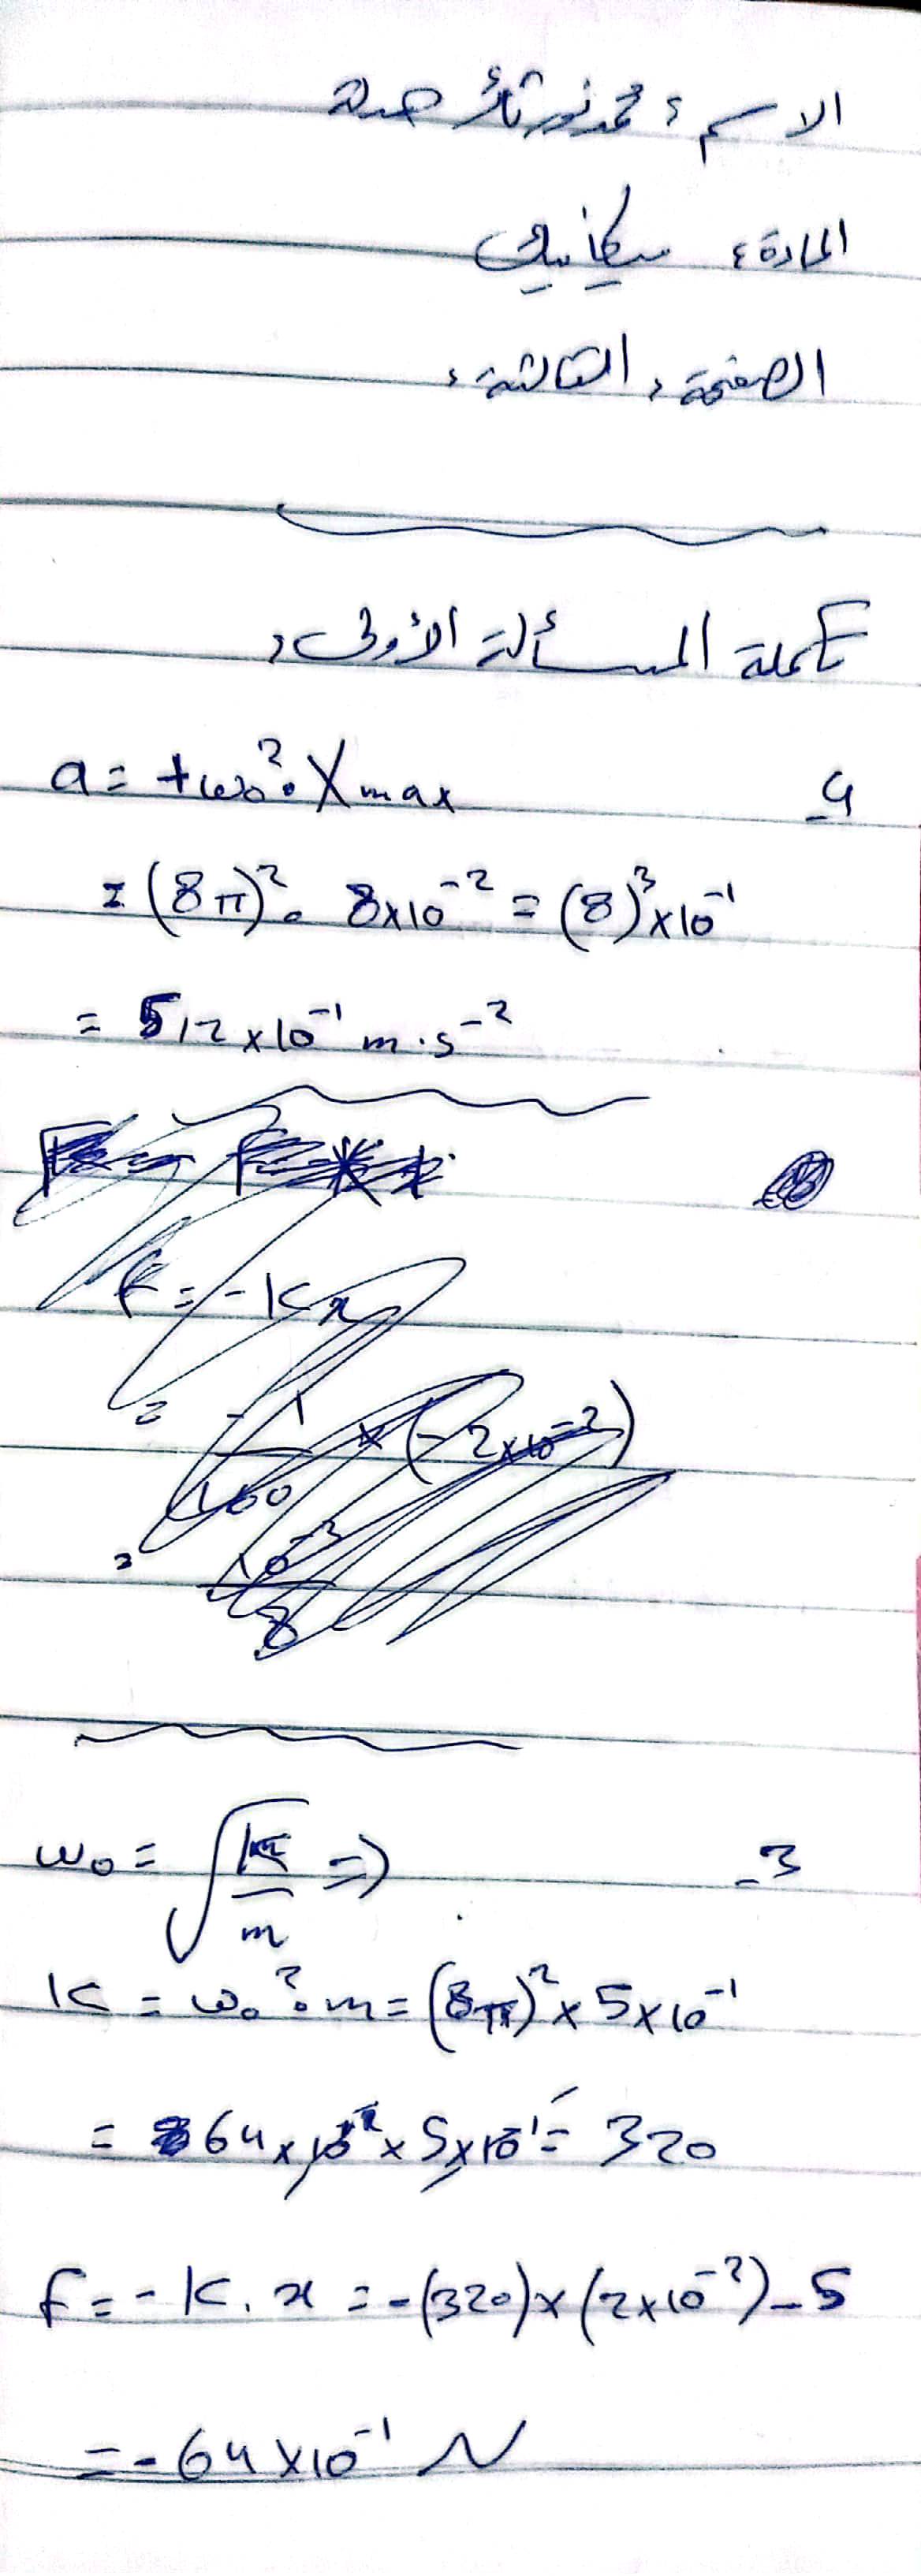 الاسم: محمد نور ثائر
المادة: ميكانيك
الصفحة: الثالثة:
تكملة المسألة الأولى:
4- a = +ω₀² · Xmax
= (8π)² · 8×10⁻² = (8)³×10⁻¹
= 512×10⁻¹ m·s⁻²
F = -Kx
= -1/100 × (-2×10⁻²)
= 10⁻³/8
3- ω₀ = √(K/m) ⇒
K = ω₀² · m = (8π)² × 5×10⁻¹
= 64×10 × 5×10⁻¹ = 320
5- F = -K . x = -(320)×(2×10⁻²)
= -64×10⁻¹ N